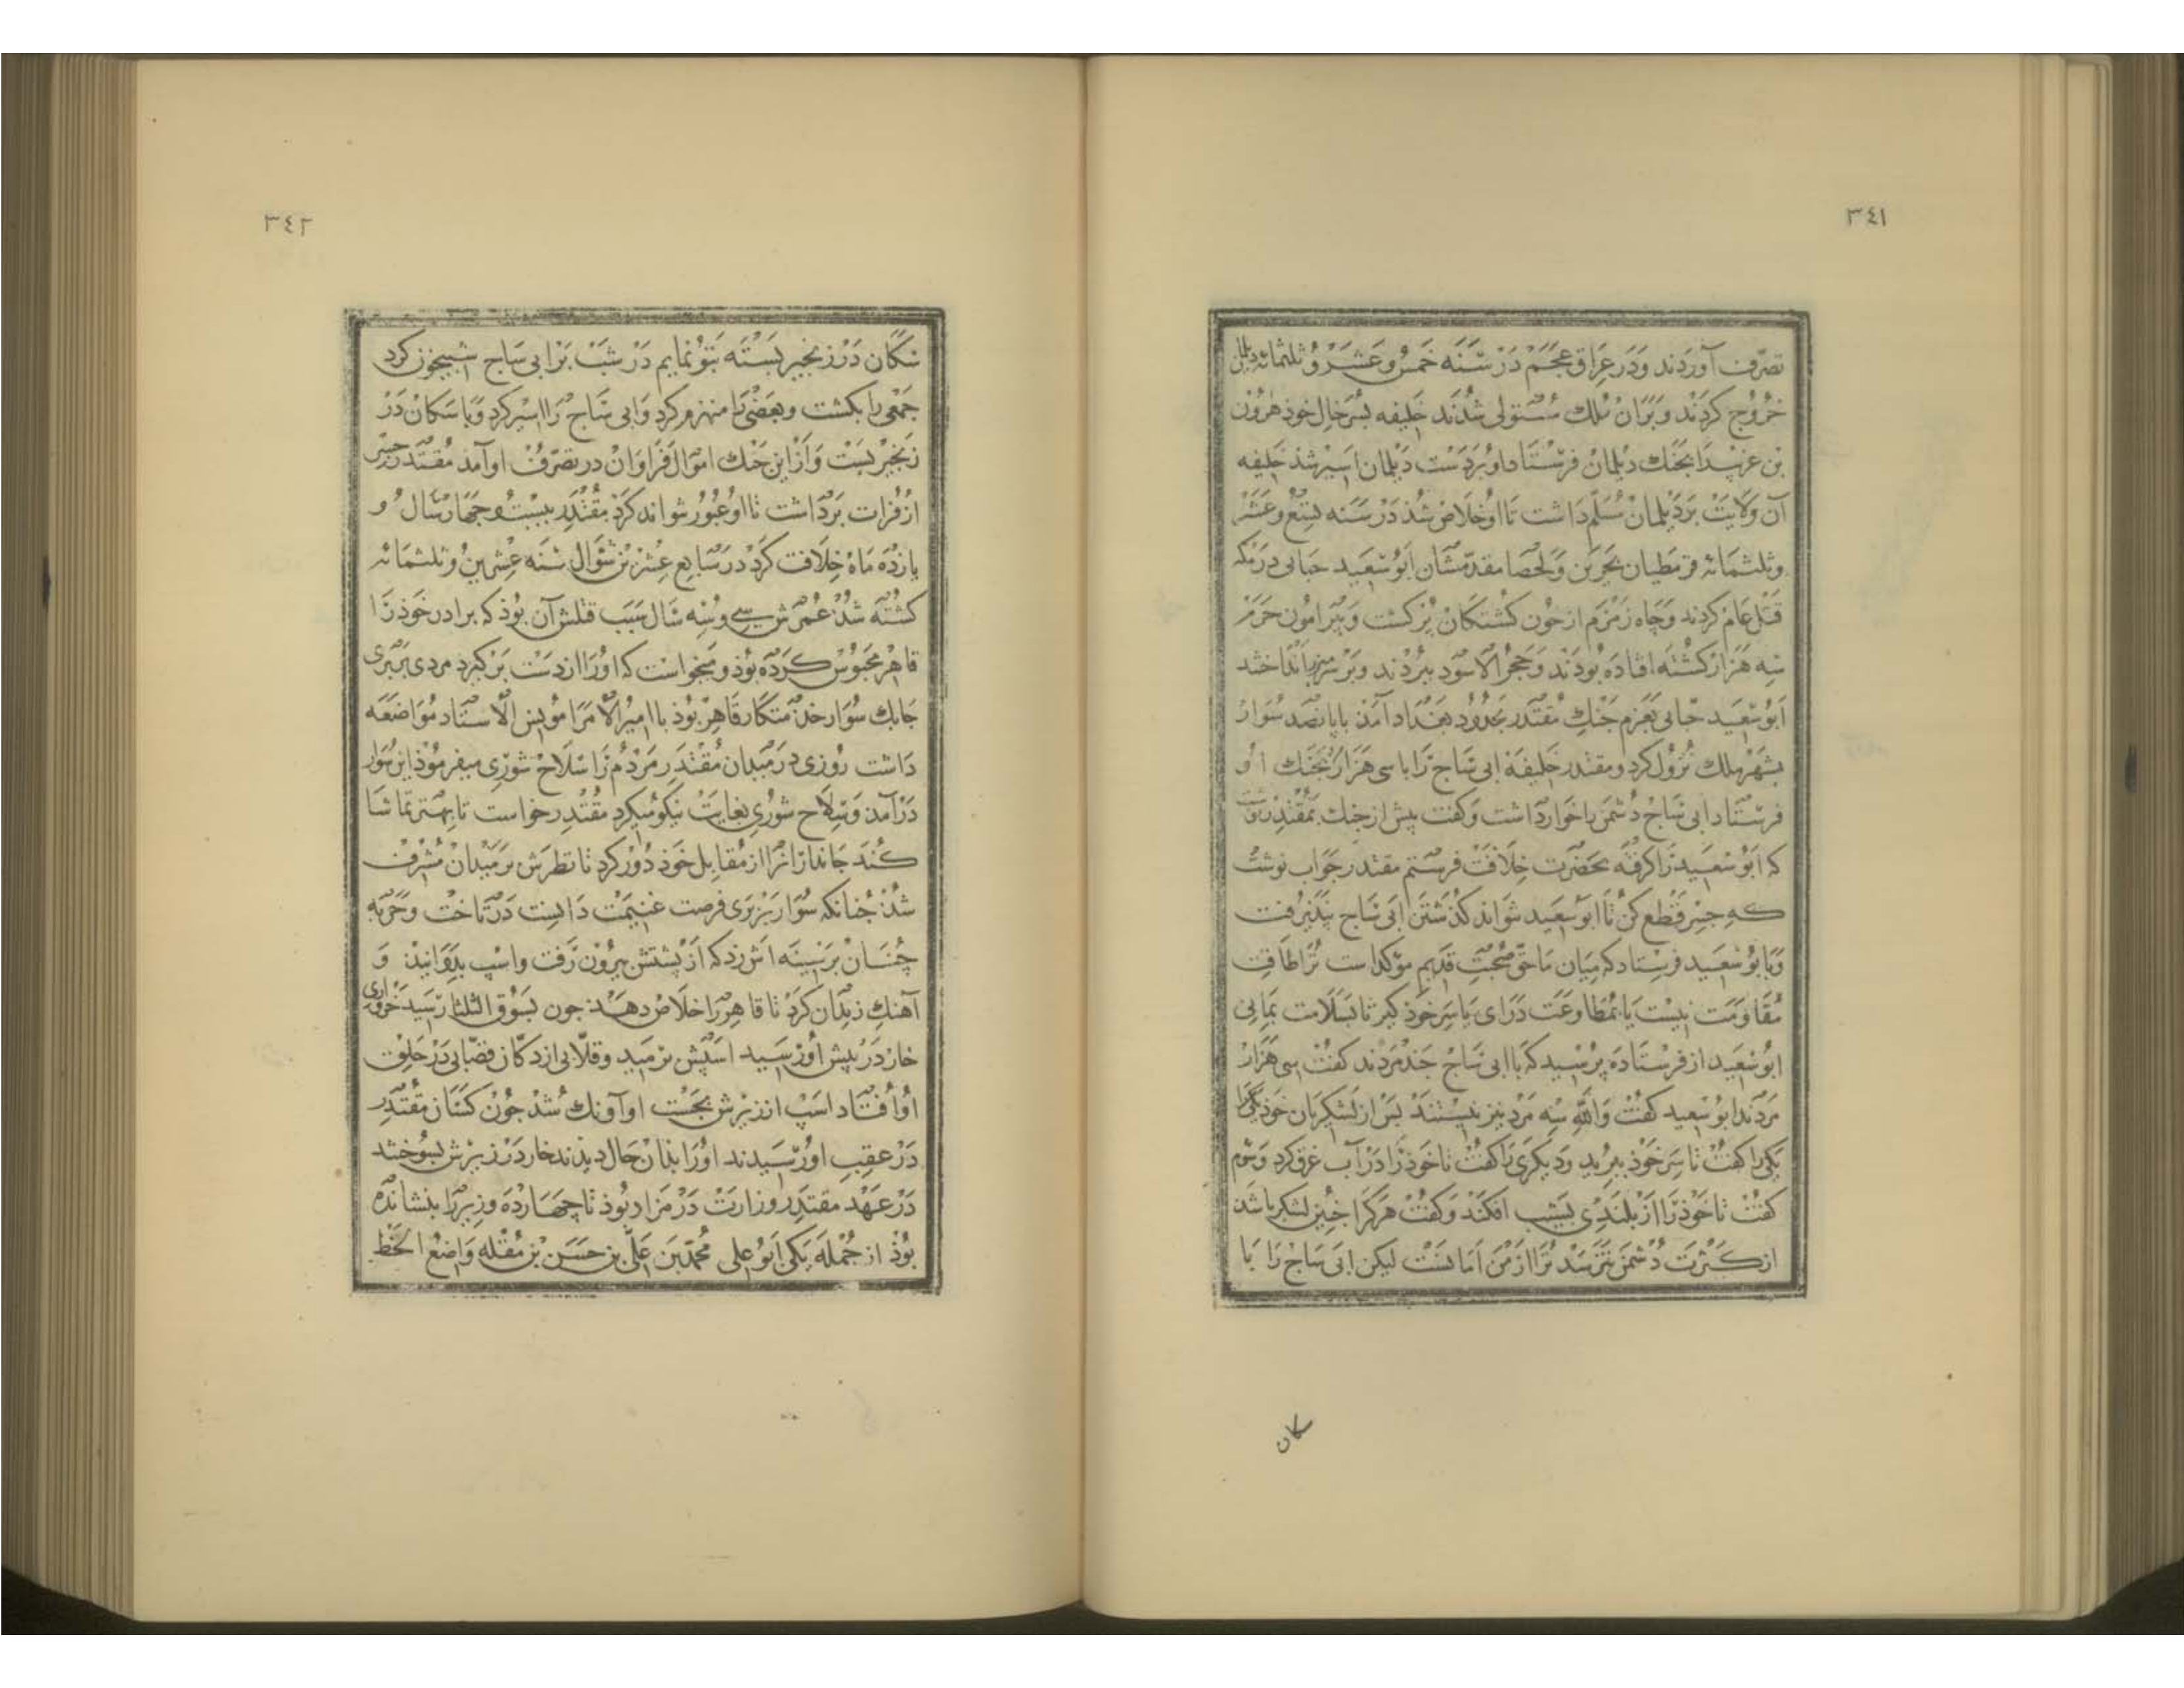 ٣٤١
تصرّف آوردند ودر عراق عجم در سنه خمس و عشر و ثلثمائه دیلمان
خروج کردند و بران ملک مستولی شدند خلیفه پسر خال خوذ هرون
بن غریب را بجنک دیلمان فرستاد او بر دست دیلمان اسیر شذ خلیفه
آن ولایت بر دیلمان مسلم داشت تا او خلاص شذ در سنه سبع وعشر
وثلثمائه قرمطیان بحرین و لحصا مقدمشان ابو سعید جنابی در مکه
قتل عام کردند و چاه زمزم از خون کشتکان پر کشت و پیرامون حرم
سه هزار کشته افتاده بودند و حجر الاسود ببردند و بر سر مبرز انداختند
ابو سعید جنابی بعزم جنک مقتدر بحدود بغداد آمذ با پانصد سوار
بشهر ملک نزول کرد و مقتدر خلیفه ابی ساج را با سی هزار بجنک او
فرستاد ابی ساج دشمن را خوار داشت و کفت پیش از جنک بمقتدر نوشت
که ابو سعید را کرفته بحضرت خلافت فرستم مقتدر جواب نوشت
که جسر قطع کن تا ابو سعید نتواند کذشتن ابی ساج نپذیرفت
و با بو سعید فرستاد که میان ما حقّ صحبت قدیم موکد است ترا طاقت
مقاومت نیست یا بمطاوعت درای یا سر خوذ کیر تا بسلامت بمانی
ابو سعید از فرستاده پرسید که با ابی ساج چند مردند کفت سی هزار
مردند ابو سعید کفت والله سه مرد نیز نیستند پس از لشکریان خوذ یکی را
یکی را کفت تا سر خوذ ببرید و دیکری را کفت تا خوذ را در آب غرق کرد و سوم
کفت تا خوذ را از بلندی بشیب افکند و کفت هر کرا چنین لشکر باشذ
از کثرت دشمن نترسد ترا از من امانست لیکن ابی ساج را با
سکان
٣٤٢
سکان در زنجیر بسته بتو نمایم در شب بر ابی ساج شبیخون کرد
جمعی را بکشت و بعضی را منهزم کرد و ابی ساج را اسیر کرد و با سکان در
زنجیر بست و از این جنک اموال فراوان در تصرف او آمد مقتدر جسر
از فرات برداشت تا او عبور نتواند کرد مقتدر بیست و چهار سال و
یازده ماه خلافت کرد در سابع عشرین شوال سنه عشرین و ثلثمائه
کشته شد عمرش سی و سه سال سبب قتلش آن بوذ که برادر خوذ را
قاهر محبوس کرده بوذ و میخواست که او را از دست بر کیرد مردی بربری
چابک سوار خدمتکار قاهر بوذ با امیر الامرا مونس الاستاد مواضعه
داشت روزی در میدان مقتدر مردم را سلاح شوری میفرموذ این سوار
در آمذ و سلاح شوری بغایت نیکو میکرد مقتدر خواست تا بهتر تماشا
کند جاندارانرا از مقابل خوذ دور کرد تا نظرش بر میدان مشرف
شذ چنانکه سوار بربری فرصت غنیمت دانست در تاخت و حربه
چنان بر سینه اش زد که از پشتش بیرون رفت و اسپ بدوانیذ و
آهنک زندان کرد تا قاهر را خلاص دهد چون بسوق الثلثا رسید خرواری
خار در پیش او رسید اسپش برمید و قلّابی از دکان قصّابی در حلق
او افتاد اسپ از زیرش بجست او آونک شد چون کسان مقتدر
در عقب او رسیدند او را بذان حال دیذند خار در زیرش بسوختند
در عهد مقتدر وزارت در مزاد بوذ تا چهارده وزیر را بنشانده
بوذ از جمله یکی ابو علی محمد بن علی بن حسن بن مقله واضع الخط